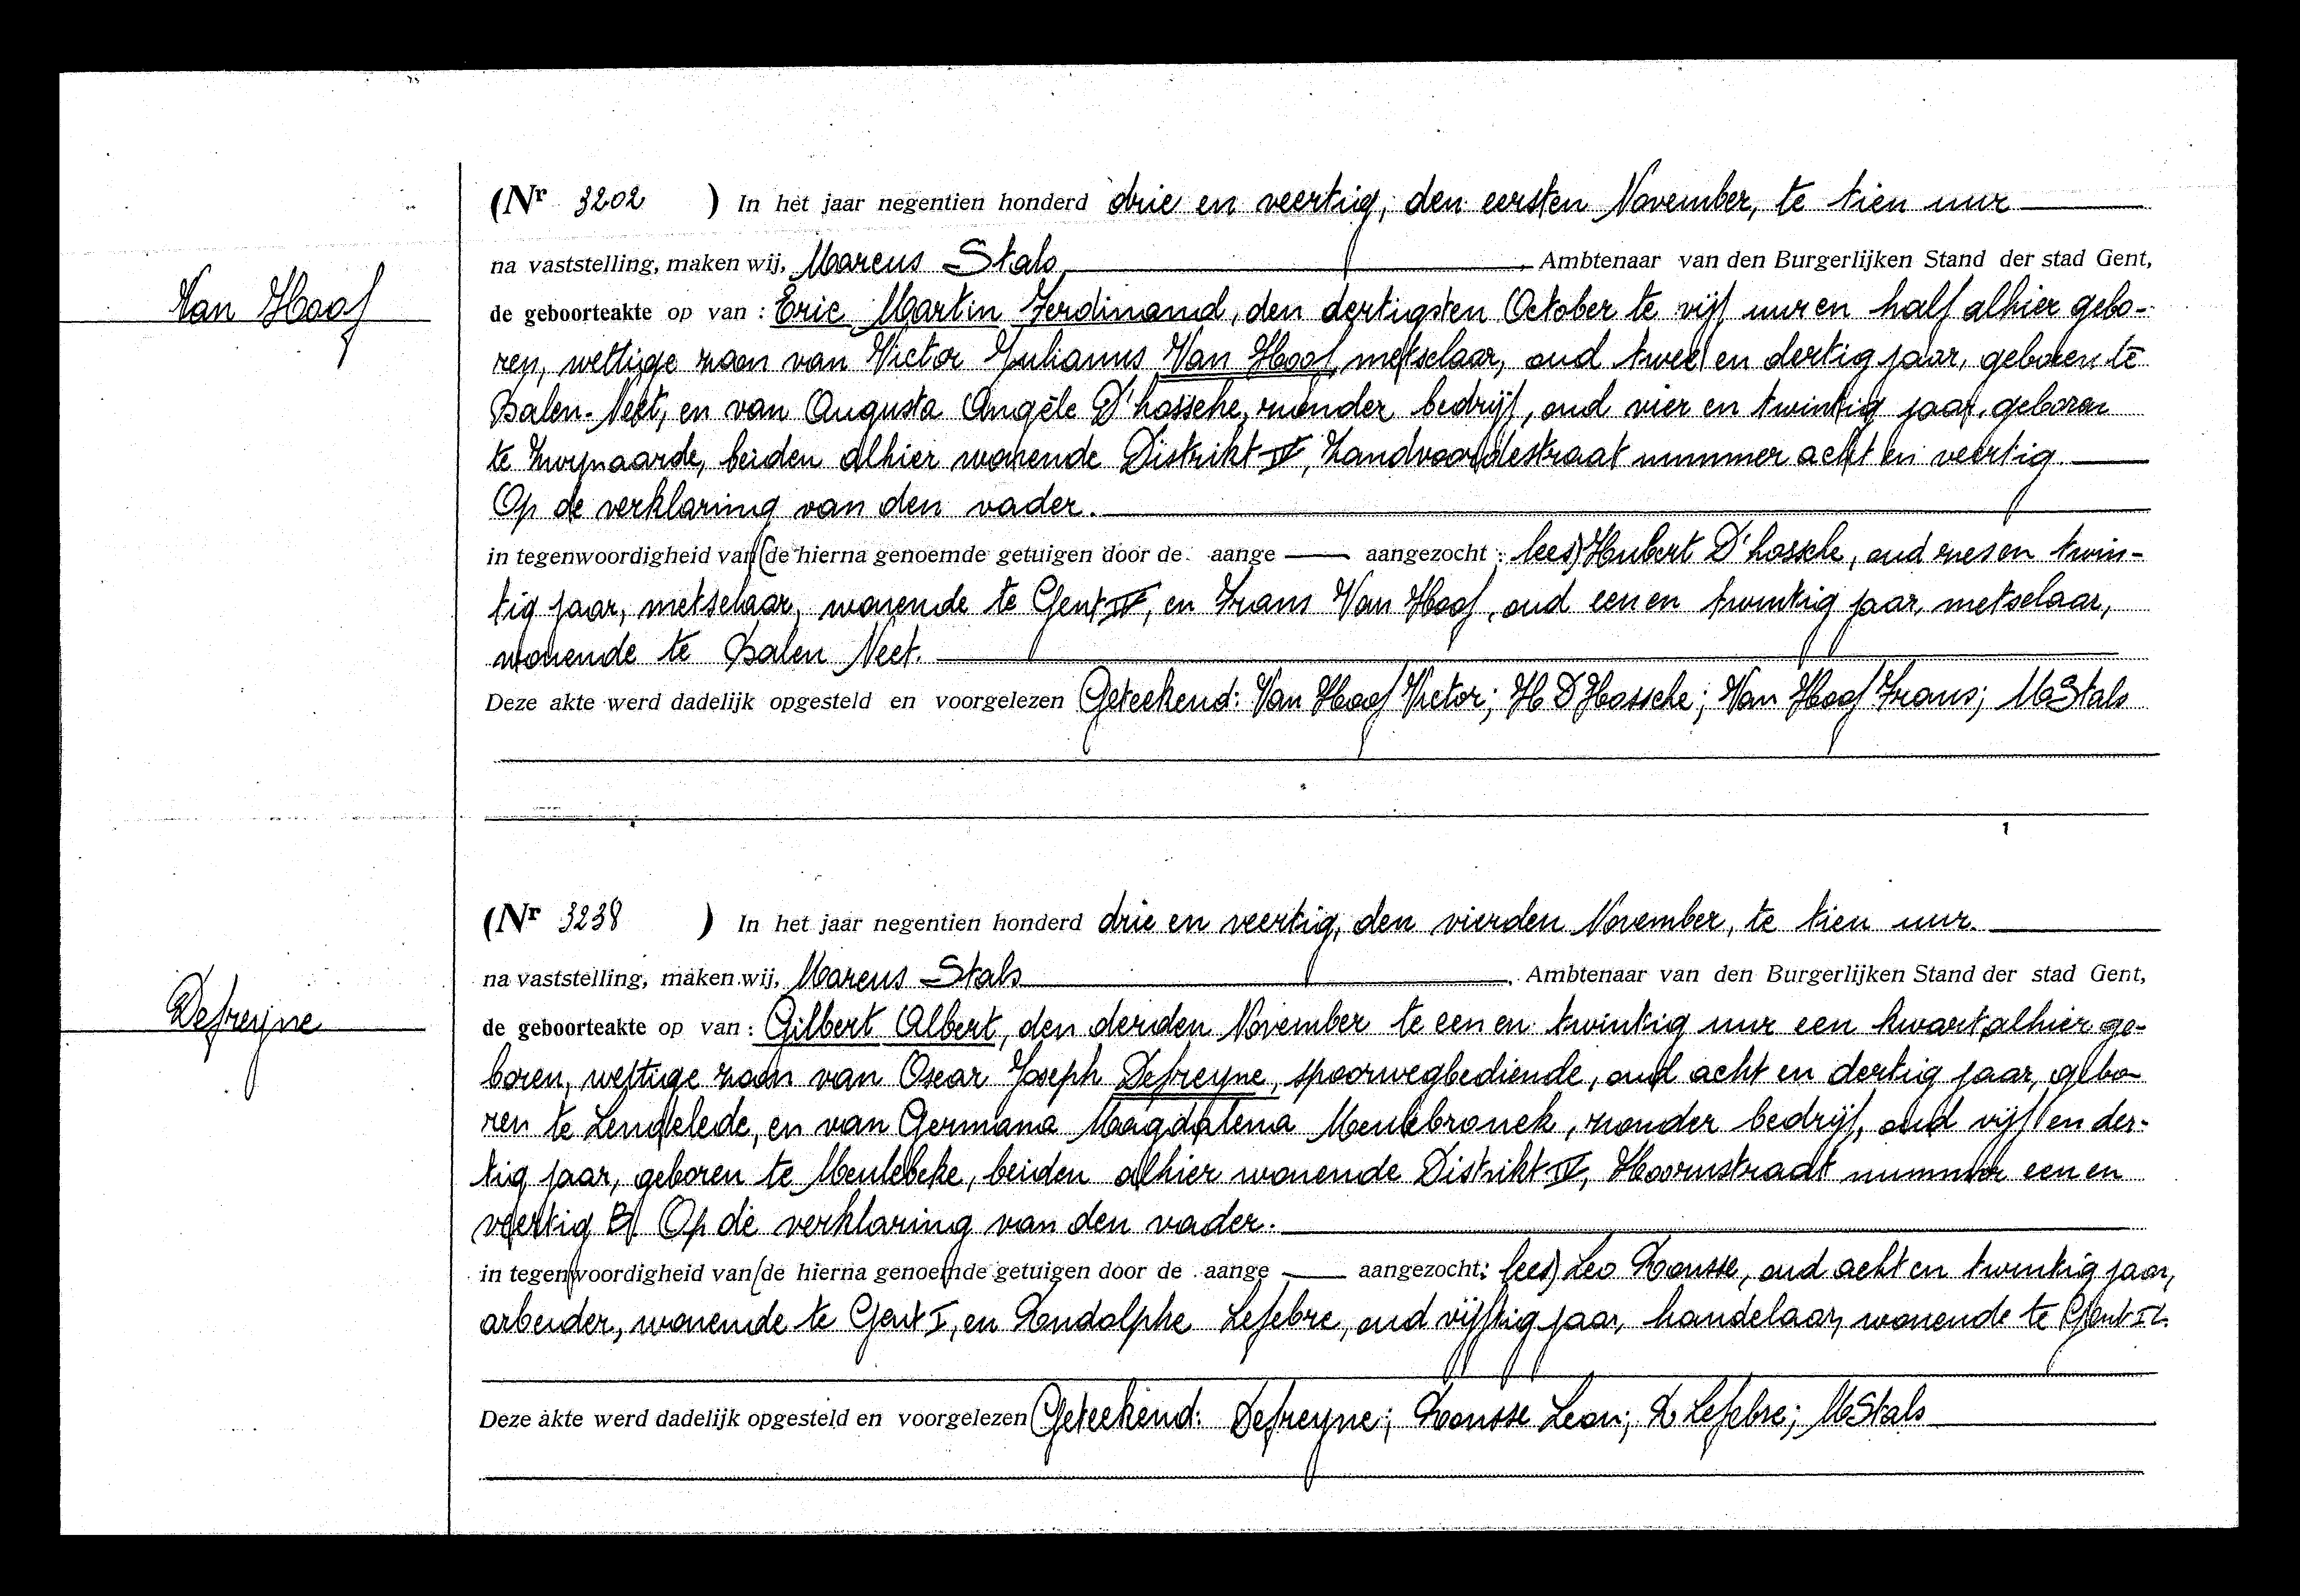 (Nr 3202 ) In het jaar negentien honderd drie en veertig, den eersten November, te tien uur
na vaststelling, maken wij, Marcus Stals, Ambtenaar van den Burgerlijken Stand der stad Gent,
Van Hoof
de geboorteakte op van : Eric Martin Ferdinand, den dertigsten October te vijf uur en half alhier gebo-
ren, wettige zoon van Victor Julianus Van Hoof, metselaar, oud twee en dertig jaar, geboren te
Balen-Neet, en van Augusta Angèle D'hossche, zonder bedrijf, oud vier en twintig jaar, geboren
te Zwijnaarde, beiden alhier wonende Distrikt IV, Zandvoordestraat nummer acht en veertig.
Op de verklaring van den vader.
in tegenwoordigheid van (de hierna genoemde getuigen door de aange aangezocht : lees) Hubert D'hossche, oud zes en twin-
tig jaar, metselaar, wonende te Gent IV, en Frans Van Hoof, oud een en twintig jaar, metselaar,
wonende te Balen Neet.
Deze akte werd dadelijk opgesteld en voorgelezen Geteekend: Van Hoof Victor; H D'Hossche; Van Hoof Frans; M Stals
(Nr 3238 ) In het jaar negentien honderd drie en veertig, den vierden November, te tien uur.
na vaststelling, maken wij, Marcus Stals, Ambtenaar van den Burgerlijken Stand der stad Gent,
Defreyne
de geboorteakte op van : Gilbert Albert, den derden November te een en twintig uur een kwart alhier ge-
boren, wettige zoon van Oscar Joseph Defreyne, spoorwegbediende, oud acht en dertig jaar, gebo
ren te Lendelede, en van Germana Magdalena Meulebrouck, zonder bedrijf, oud vijf en der-
tig jaar, geboren te Meulebeke, beiden alhier wonende Distrikt IV, Hoornstraat nummer een en
veertig B. Op de verklaring van den vader.
in tegenwoordigheid van (de hierna genoemde getuigen door de aange aangezocht: lees) Leo Rousse, oud acht en twintig jaar,
arbeider, wonende te Gent I, en Rudolphe Lefebre, oud vijftig jaar, handelaar, wonende te Gent
Deze akte werd dadelijk opgesteld en voorgelezen Geteekend: Defreyne; Rousse Leon; R Lefebre; M Stals